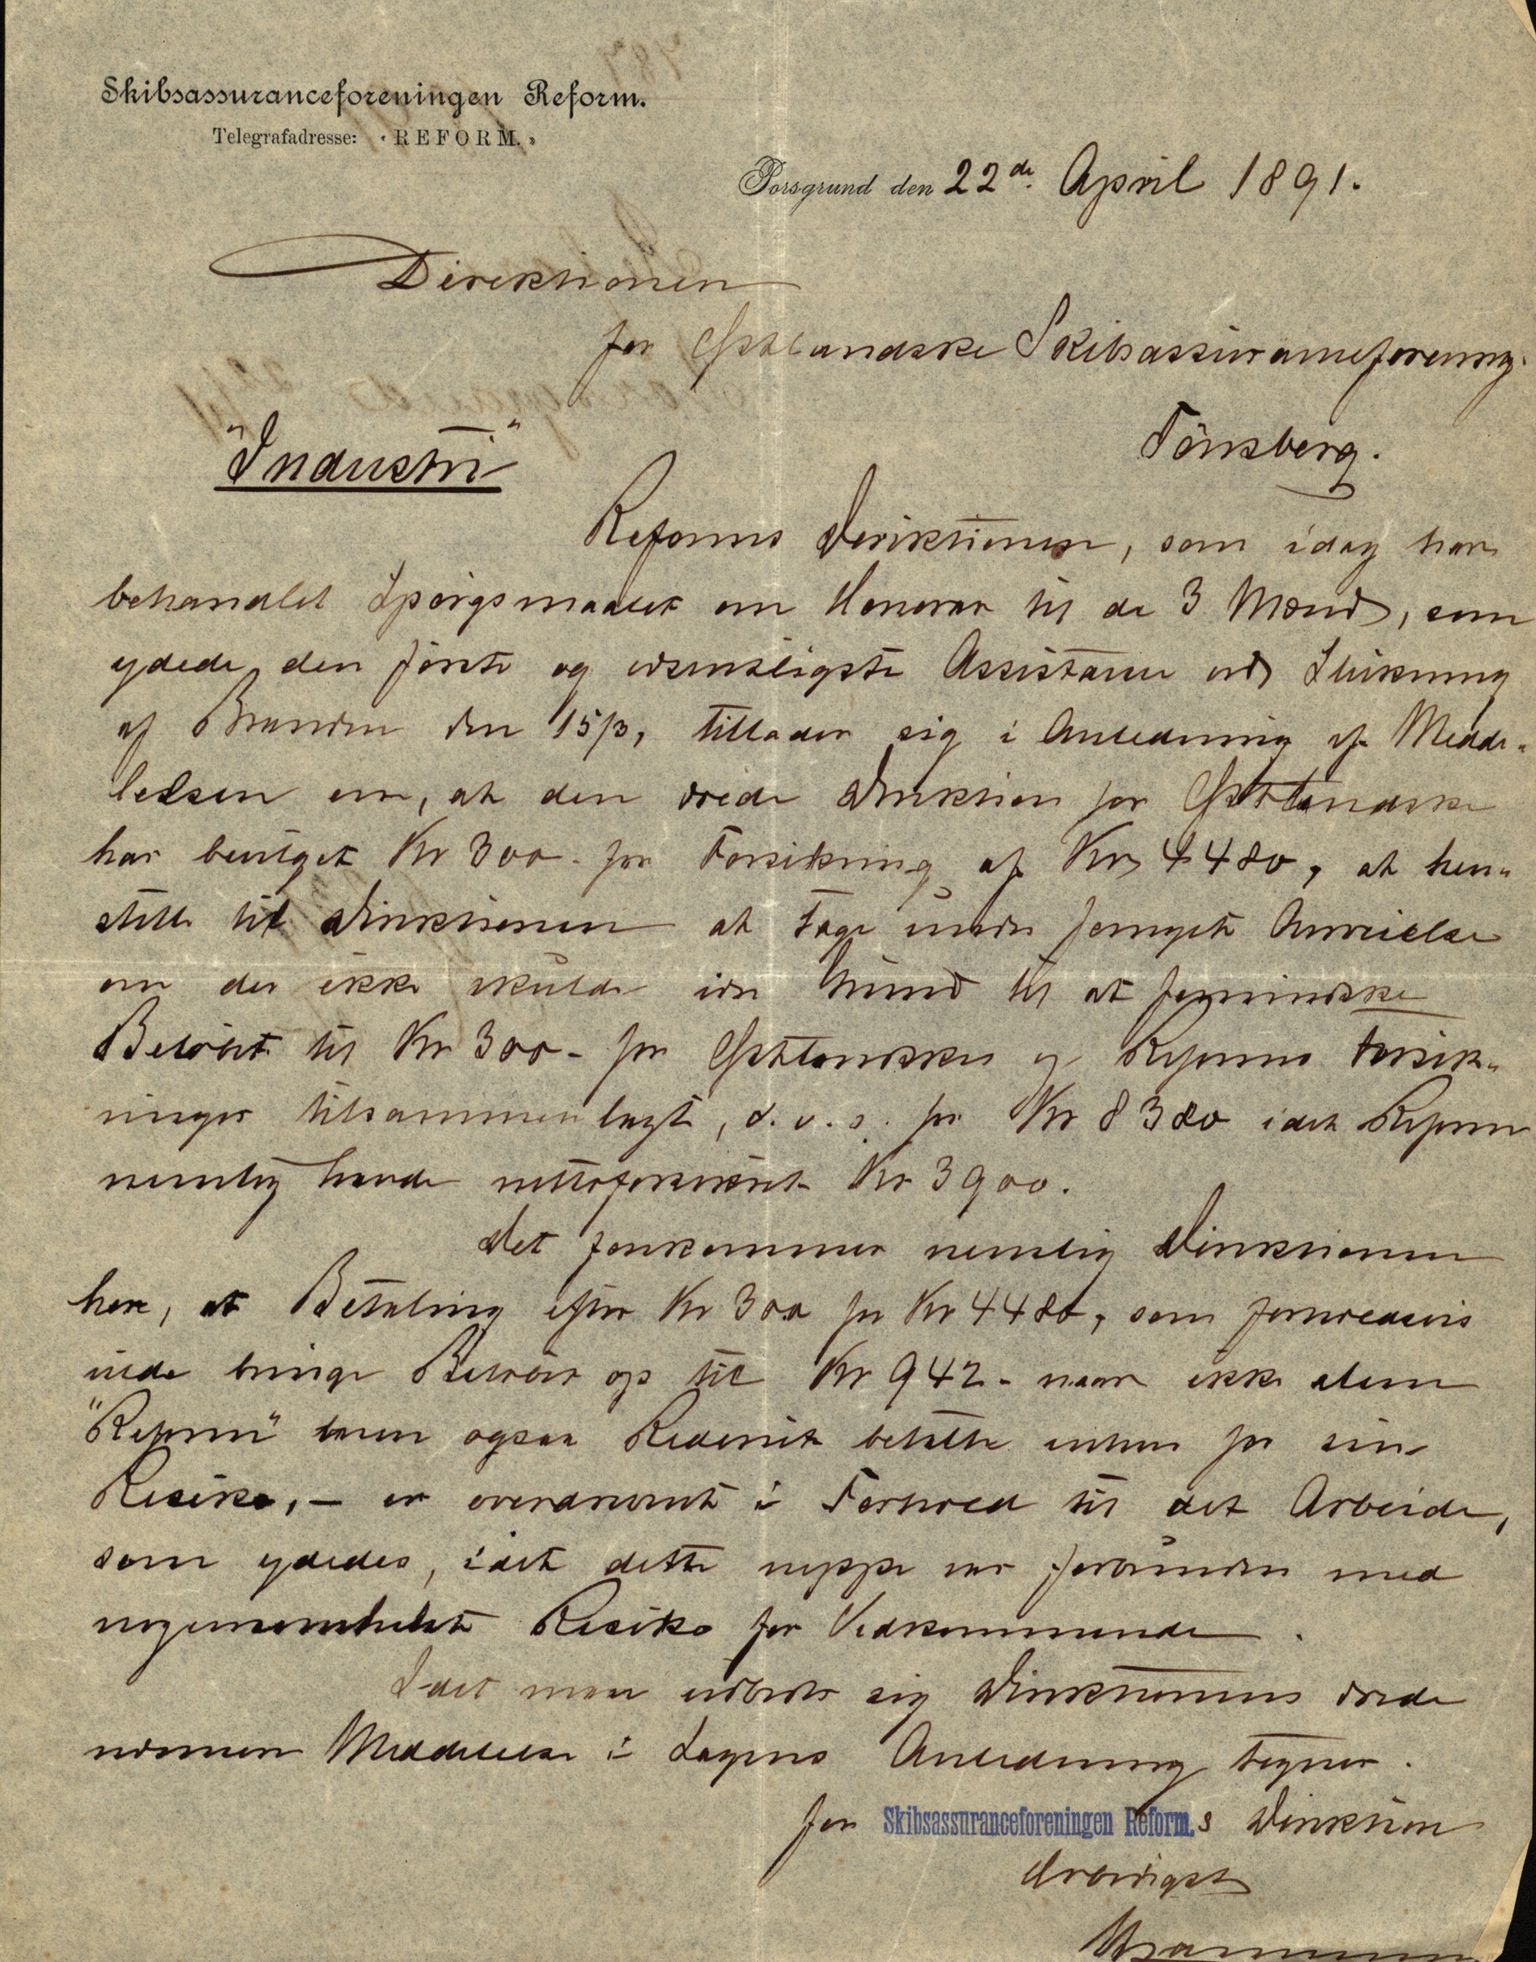 Skibsassuranceforeningen Reform.
Telegrafadresse: "REFORM."
Porsgrund den 22de April 1891.
Direktionen
for Østlandske Skibsassuranceforening.
Tönsberg.
"Industri"
Reforms Direktionen, som idag har
behandlet Spörgsmaalet om Honorar til de 3 Mænd, som
ydede den förste og væsentligste Assistance ved Slukning
af Branden den 15/3, tillader sig i Anledning af Medde-
lelsen om, at den ærede Direktion for Østlandske
har bevilget Kr 300 - for Forsikring af Kr 4480, at hen-
stille til Direktionen at tage under fornyet Overveielse
om der ikke skulde være Grund til at formindske
Belöbet til Kr 300 - for Østlandskes og Reforms Forsik-
ringer tilsammenlagt, d. v. s. for Kr 8380 idet Reform
nemlig havde nettoforsikret Kr 3900.
Det forekommer nemlig Direktionen
her, at Betaling efter Kr 300 for Kr 4480, som
vilde bringe Belöbet op til Kr 942 - naar ikke alene
"Reform" men ogsaa Rederiet betalte for sin
Risiko, - er overdrevent i Forhold til det Arbeide,
som ydedes, idet dette neppe var forbunden med
nogensomhelst Risiko for Vedkommende.
Idet man udbeder sig Direktionens ærede
nærmere Meddelelse i Sagens Anledning tegner.
for Skibsassuranceforeningen Reform.s Direktion
ærbödigst